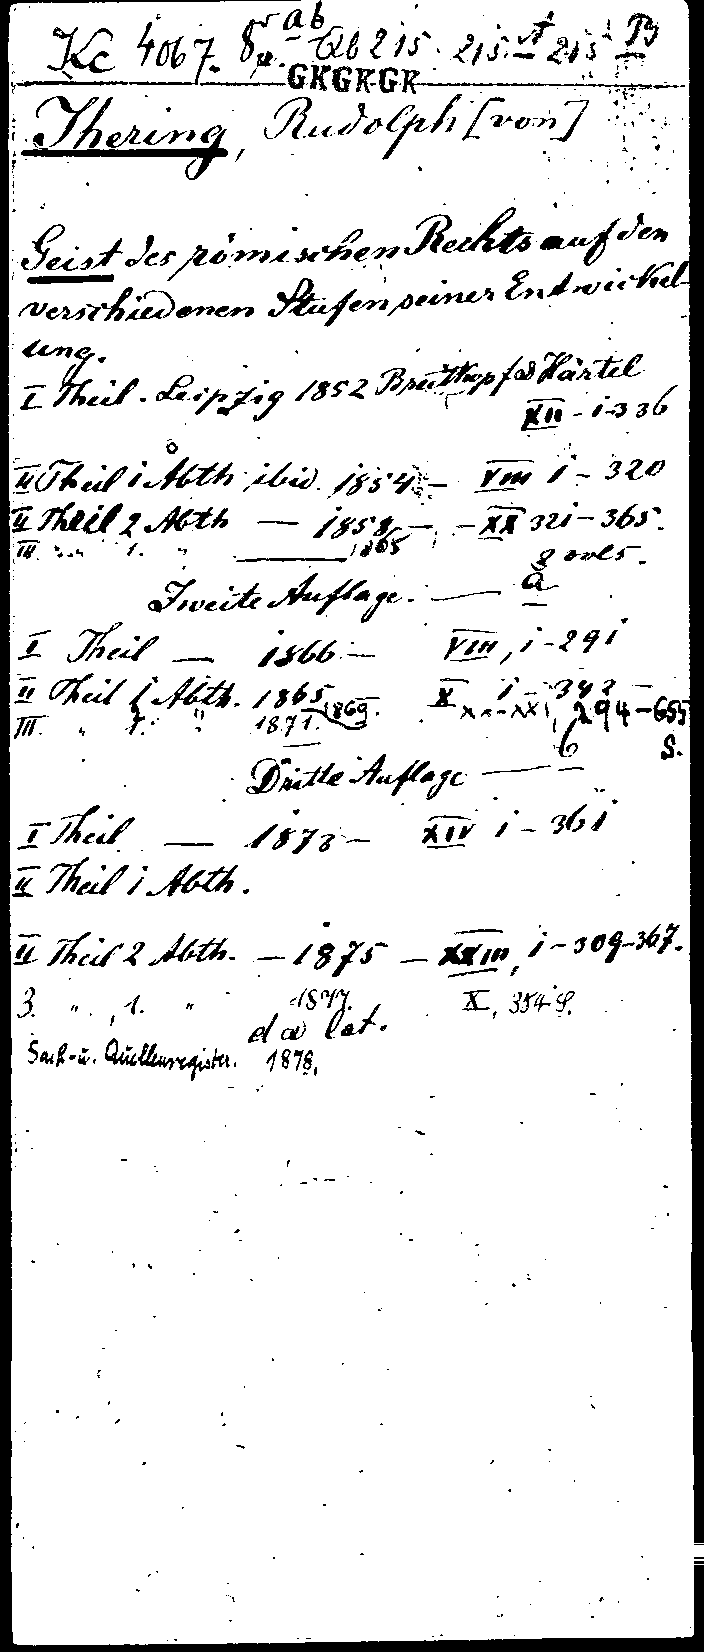 Kc 4067. 8r a b Qb 215. 215 A 215 B
GKGKGK
Jhering, Rudolph [von]
Geist des römischen Rechts auf den
verschiedenen Stufen seiner Entwickel-
ung.
I Theil. Leipzig 1852 Breitkopf & Härtel
XII - 1-336
II Theil 1 Abth ibid. 1854 - VIII 1 - 320
II Theil 2 Abth — 1858 — XX 321-365.
III " 1. " — 1865 3 vols.
Zweite Auflage. — a
I Theil — 1866 — VIII, 1-291
II Theil 1 Abth. 1865 X 1 - 342 -
III. " 1. " 1871. 1869. XX-XXI, 294-655
S.
Dritte Auflage — b
I Theil — 1873 — XIV 1 - 361
II Theil 1 Abth.
II Theil 2 Abth. — 1875 — XXIII, 1-309-367.
3. " , 1. " 1877. X, 354 S.
lat.
Sach- u. Quellenregister. 1878.